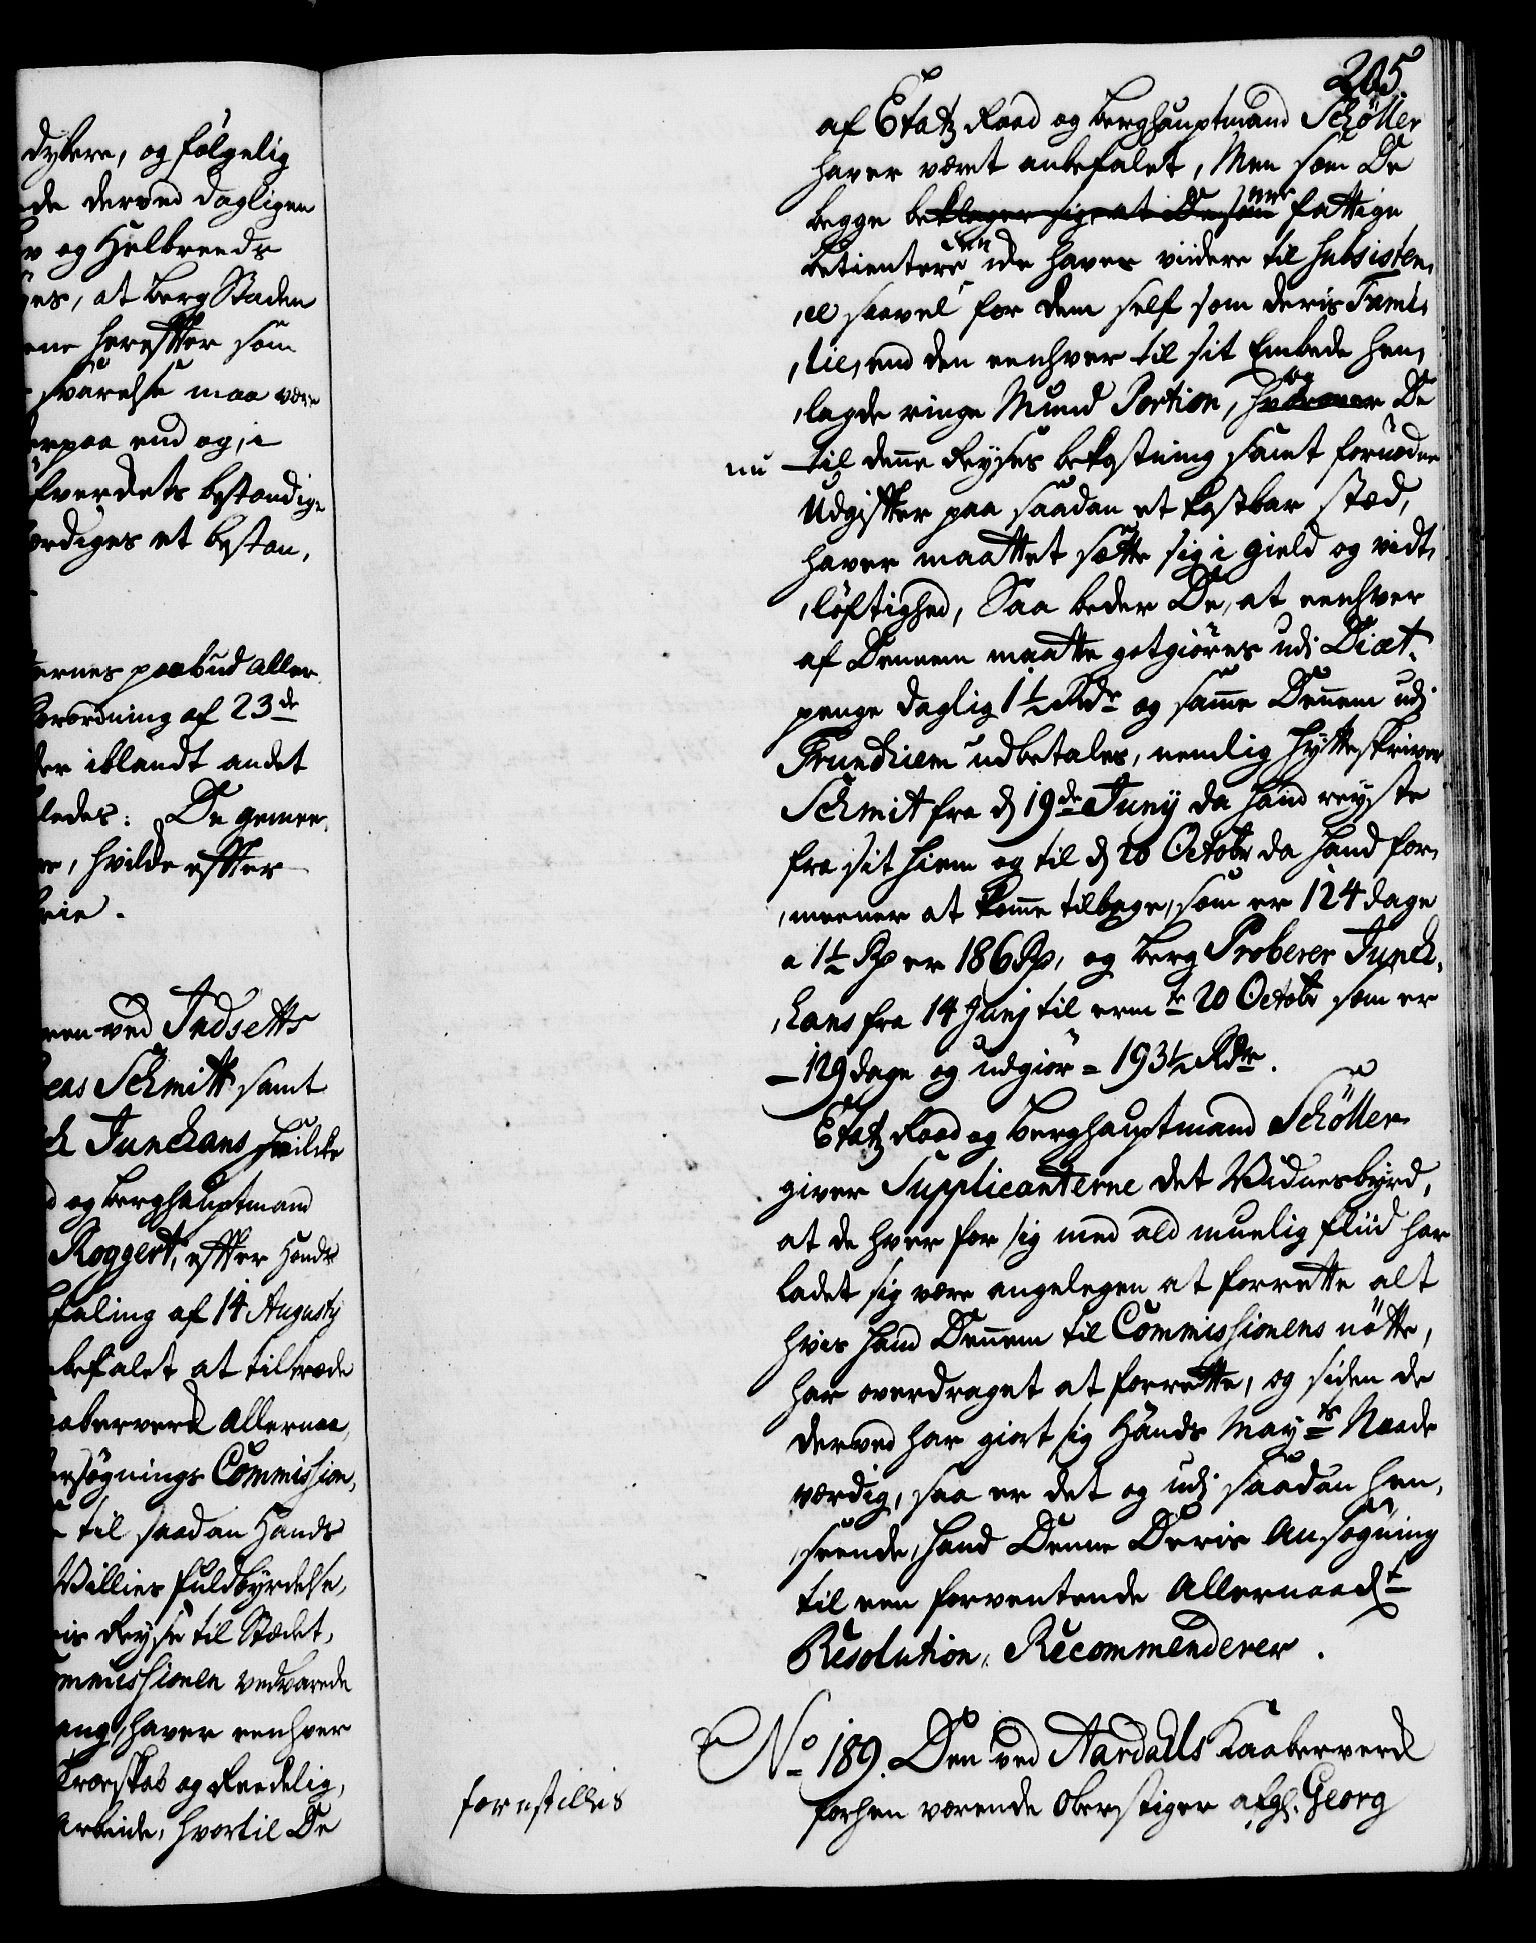 dybere, og følgelig
de derved dagligen
og Helbreeds
es, at Berg Staden
ene herefter som
svarelse maa være
erpaa end og, i
kverdets bestandige
ærdiges et bestan,
ernes paabud aller
forordning af 23de
der iblandt andet
ledes: De gemee,
hvilke efter
veie.
een ved Indsetts
eas Schmitt samt
ch Junckans hvilcke
og Berghauptmand
Roggert, efter Hands
faling af 14 Augusty
befalet at tiltræde
aaberverck allernaa,
ersøgnings Commission,
til saadan Hands
Villies fuldbyrdelse,
is Reyse til Stædet,
mmissionen vedvarede
ang, haver eenhver
Troeskab og Reedelig,
Arbeide, hvortil De
205.
af Etatz Raad og Berghauptmand Schøller
haver været anbefalet, Men som De
begge beklager sig at De som ere fattige
betientere en ide haver viidere til subsisten,
,ce saavel for dem self som deris Fami,
,lie, end den eenhver til sit Embede hen,
,lagde ringe Mund Portion, hvorover og De
nu til denne Reyses bekostning samt fornødne
Udgifter paa saadan et kostbar stæd,
haver maattet sætte sig i gield og vidt,
,løftighed, Saa beder De, at eenhver
af Dennem maatte gotgiøres udi Diæt,
penge daglig 1½ Rdr og samme Dennem udi
Trundhiem udbetales, nemlig Hytteskriver
Schmit fra d 19de Junij da hand reyste
fra sit hiem og til d 20 Octobr da hand for,
,meener at komme tilbage, som er 124 dage
a 1½ Rd er 186 Rd, og Berg Proberer Junck,
,hans fra 14 Junij til erm te 20 Octobr som er
129 dage og udgiør = 193½ Rdr.
Etatz Raad og Berghauptmand Schøller
giver Supplicanterne det Vidnesbyrd,
at de hver for sig med ald muelig fliid har
ladet sig være angelegen at forrette alt
hvis hand Dennem til Commissionens nøtte,
har overdraget at forrette, og siden de
derved har giort sig Hands Mayts Naade
værdig, saa er det og udi saadan hen,
,seende, hand Denne Deris Ansøgning
til een forventende Allernaadst
Resolution, Recommenderer.
No 189. Den ved Aardalls Kaaberverck
forestilles
forhen værende Oberstiger afg. Georg